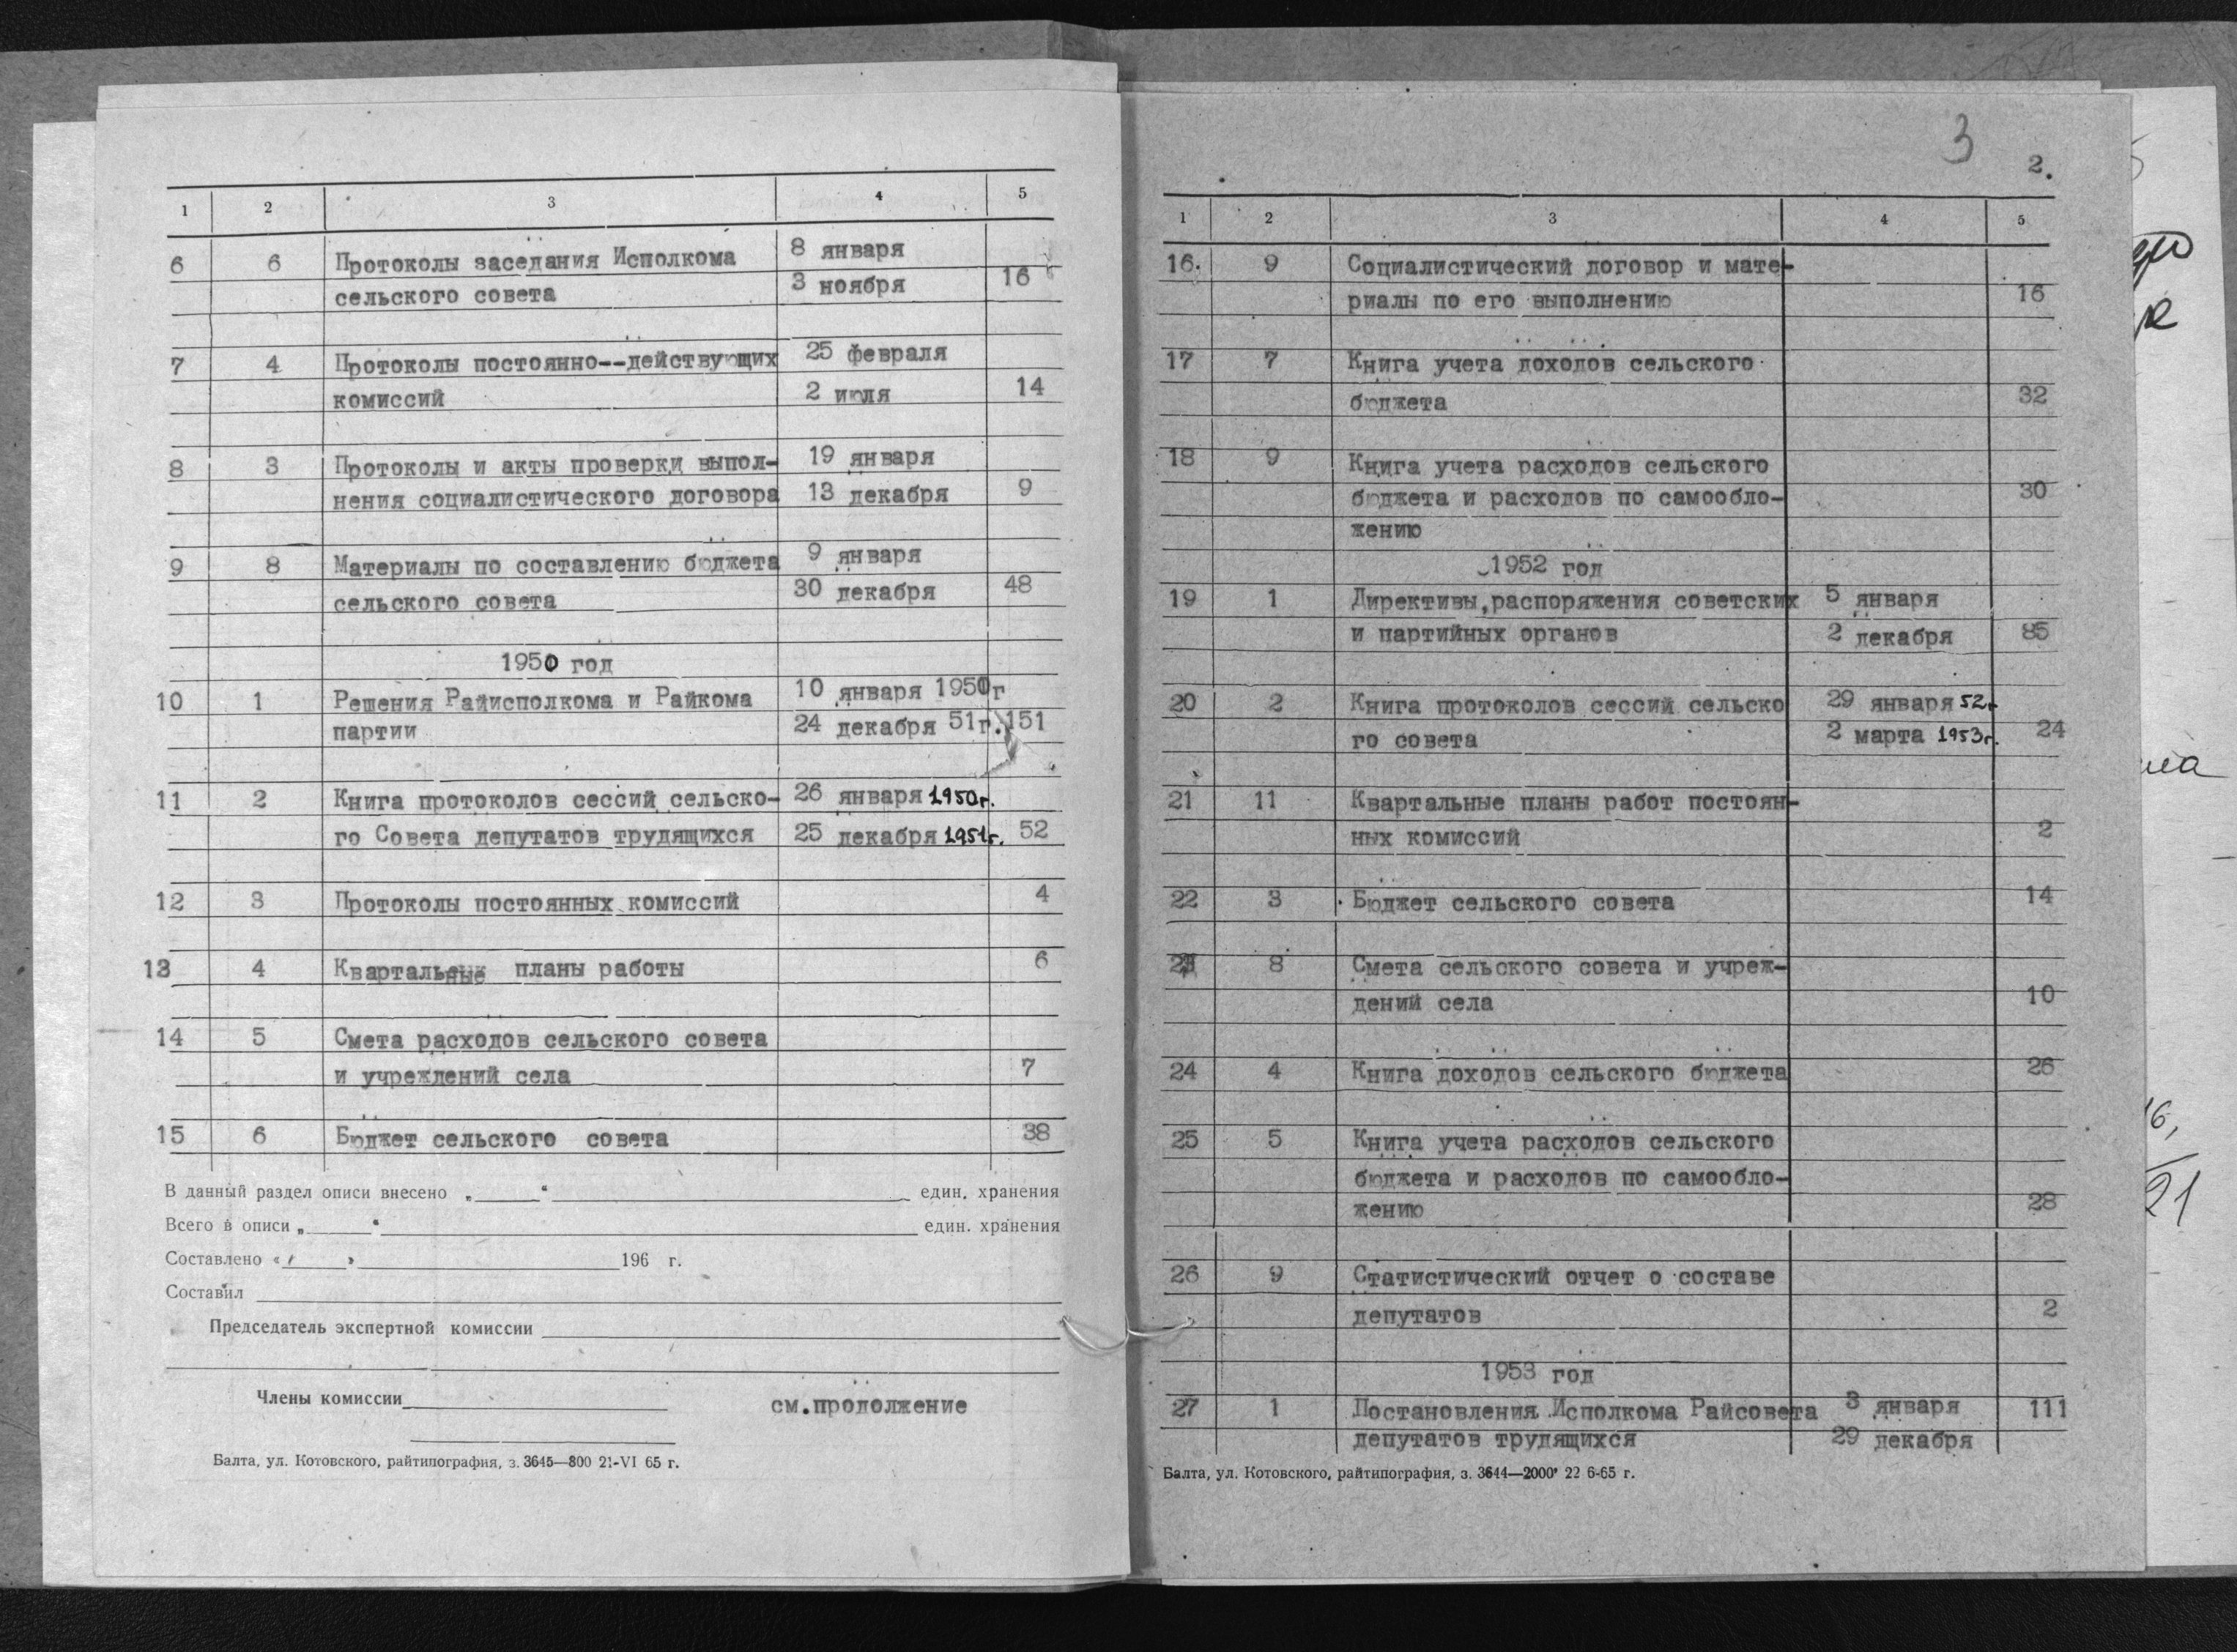 1 2 3 4 5
6 6 Протоколы заседания Исполкома 8 января
сельского совета 3 ноября 16
7 4 Протоколы постоянно--действующих 25 февраля
комиссий 2 июля 14
8 3 Протоколы и акты проверки выпол- 19 января
нения социалистического договора 13 декабря 9
9 8 Материалы по составлению бюджета 9 января
сельского совета 30 декабря 48
1950 год
10 1 Решения Райисполкома и Райкома 10 января 1950г
партии 24 декабря 51г. 151
11 2 Книга протоколов сессий сельско- 26 января 1950г.
го Совета депутатов трудящихся 25 декабря 1951г. 52
12 3 Протоколы постоянных комиссий 4
13 4 Квартальные планы работы 6
14 5 Смета расходов сельского совета
и учреждений села 7
15 6 Бюджет сельского совета 38
В данный раздел описи внесено „ “ един. хранения
Всего в описи „ “ един. хранения
Составлено « » 196 г.
Составил
Председатель экспертной комиссии
Члены комиссии см.продолжение
Балта, ул. Котовского, райтипография, з. 3645—800 21-VI 65 г.
3
2.
1 2 3 4 5
16. 9 Социалистический договор и мате-
риалы по его выполнению 16
17 7 Книга учета доходов сельского
бюджета 32
18 9 Книга учета расходов сельского
бюджета и расходов по самообло- 30
жению
1952 год
19 1 Директивы,распоряжения советских 5 января
и партийных органов 2 декабря 85
20 2 Книга протоколов сессий сельско 29 января 52г
го совета 2 марта 1953г. 24
21 11 Квартальные планы работ постоян-
ных комиссий 2
22 3 Бюджет сельского совета 14
8 Смета сельского совета и учреж-
дений села 10
24 4 Книга доходов сельского бюджета 26
25 5 Книга учета расходов сельского
бюджета и расходов по самообло-
жению 28
26 9 Статистический отчет о составе
депутатов 2
1953 год
27 1 Постановления Исполкома Райсовета 3 января 111
депутатов трудящихся 29 декабря
Балта, ул. Котовского, райтипография, з. 3644—2000 22 6-65 г.